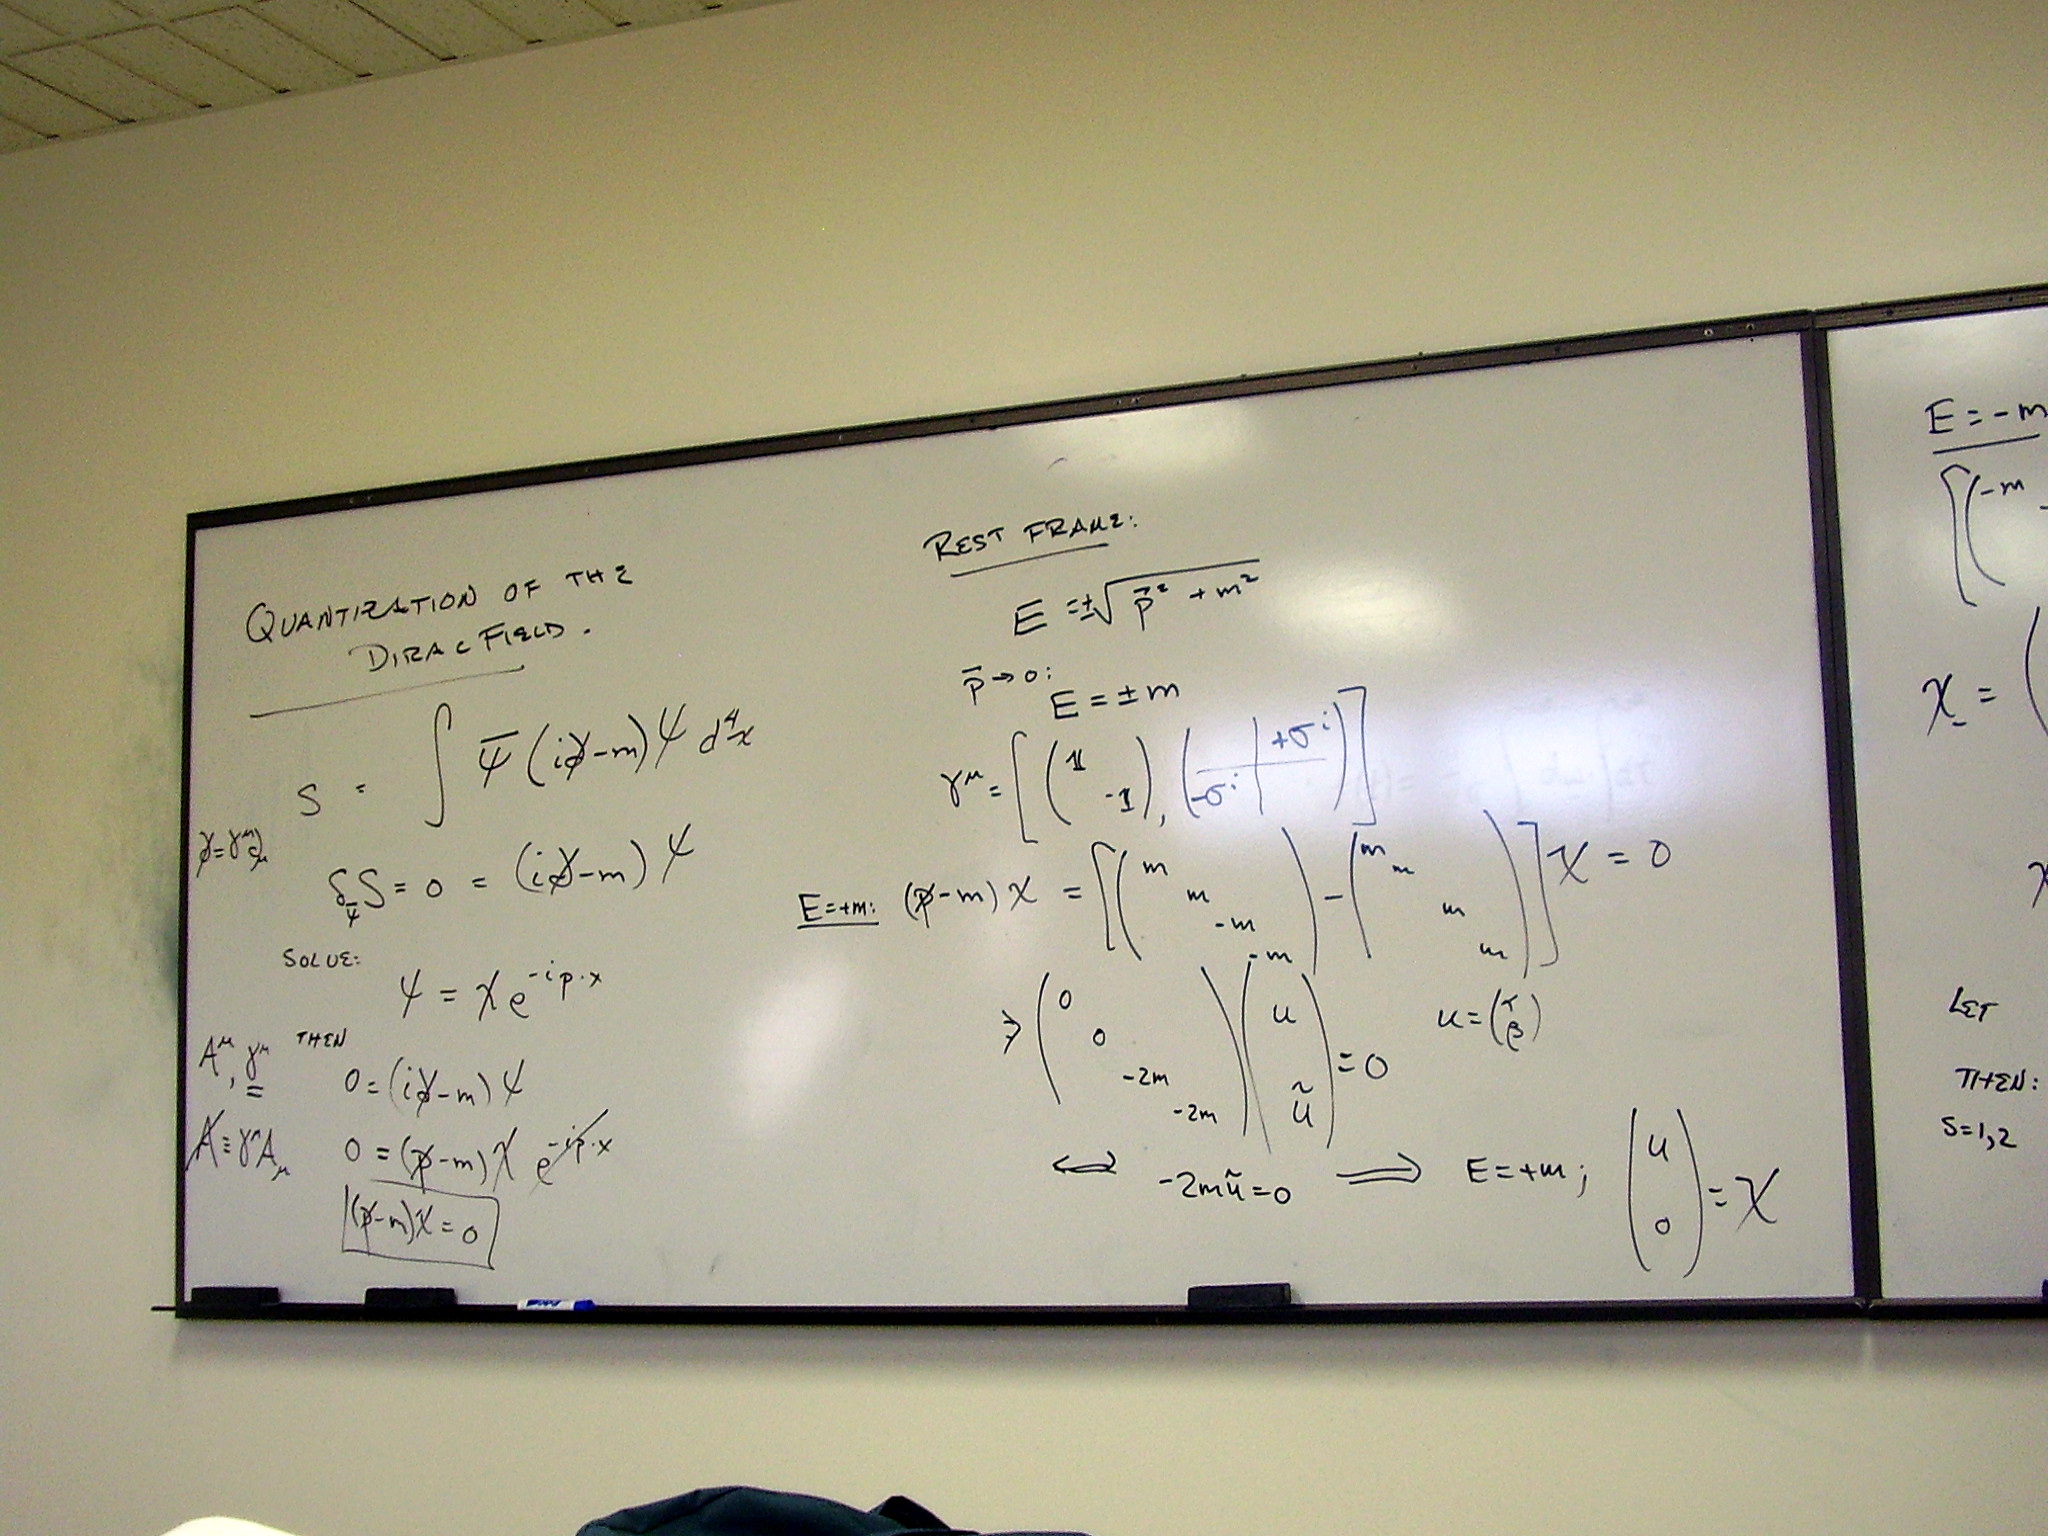 QUANTIZATION OF THE
DIRAC FIELD.
S = ∫ ψ̄ (i∂̸ - m) ψ d⁴x
∂̸ = γ^μ ∂_μ
δ_ψ̄ S = 0 = (i∂̸ - m) ψ
SOLVE:
ψ = χ e^{-ip·x}
A^μ, γ^μ
THEN
0 = (i∂̸ - m) ψ
A̸ ≡ γ^μ A_μ
0 = (p̸ - m) χ e^{-ip·x}
(p̸ - m) χ = 0
REST FRAME:
E = ±√(p⃗² + m²)
p⃗ → 0:
E = ±m
γ^μ = [(𝟙 -𝟙), (-σ^i | +σ^i)]
E=+m: (p̸ - m) χ = [(m m -m -m) - (m m m m)] χ = 0
⇒ (0 0 -2m -2m) (u ũ) = 0 u = (↑ β)
⟷ -2mũ = 0 ⟹ E = +m; (u 0) = χ
E = -m
[(-m
χ_ = (
LET
THEN:
S = 1,2